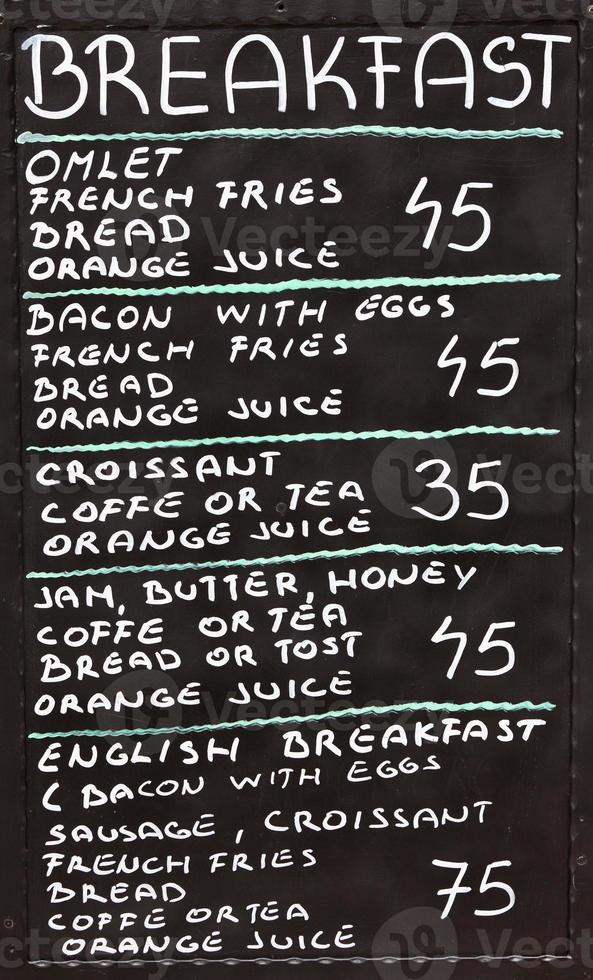 BREAKFAST
OMLET
FRENCH FRIES
BREAD
ORANGE JUICE
45
BACON WITH EGGS
FRENCH FRIES
BREAD
ORANGE JUICE
45
CROISSANT
COFFE OR TEA
ORANGE JUICE
35
JAM, BUTTER, HONEY
COFFE OR TEA
BREAD OR TOST
ORANGE JUICE
45
ENGLISH BREAKFAST
( BACON WITH EGGS
SAUSAGE, CROISSANT
FRENCH FRIES
BREAD
COFFE OR TEA
ORANGE JUICE
75